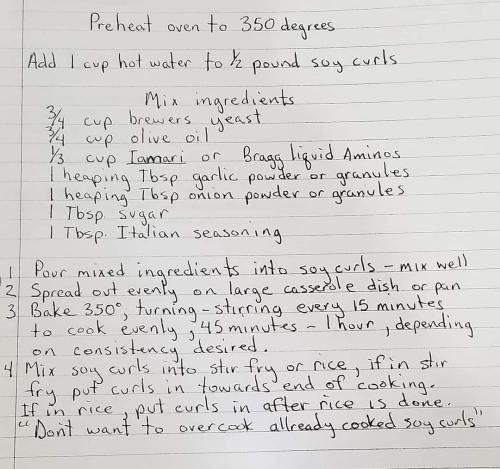 Preheat oven to 350 degrees
Add 1 cup hot water to 1/2 pound soy curls
Mix ingredients
3/4 cup brewers yeast
3/4 cup olive oil
1/3 cup Tamari or Bragg liquid Aminos
1 heaping Tbsp garlic powder or granules
1 heaping Tbsp onion powder or granules
1 Tbsp sugar
1 Tbsp. Italian seasoning
1 Pour mixed ingredients into soy curls - mix well
2 Spread out evenly on large casserole dish or pan
3 Bake 350°, turning - stirring every 15 minutes
to cook evenly, 45 minutes - 1 hour, depending
on consistency desired.
4 Mix soy curls into stir fry or rice, if in stir
fry put curls in towards end of cooking.
If in rice, put curls in after rice is done.
"Don't want to overcook allready cooked soy curls"